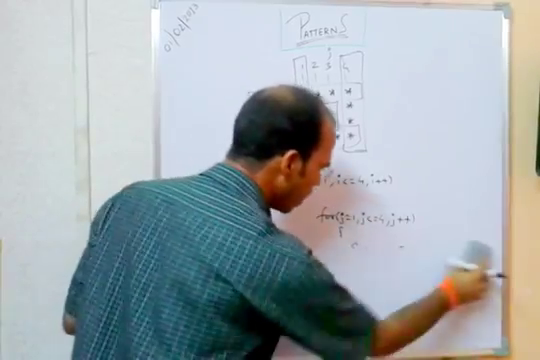 01/02/2023
PATTERNS
j
1 2 3 4
* *
*
*
* *
i<=4, i++)
for(j=1, j<=4, j++)
{